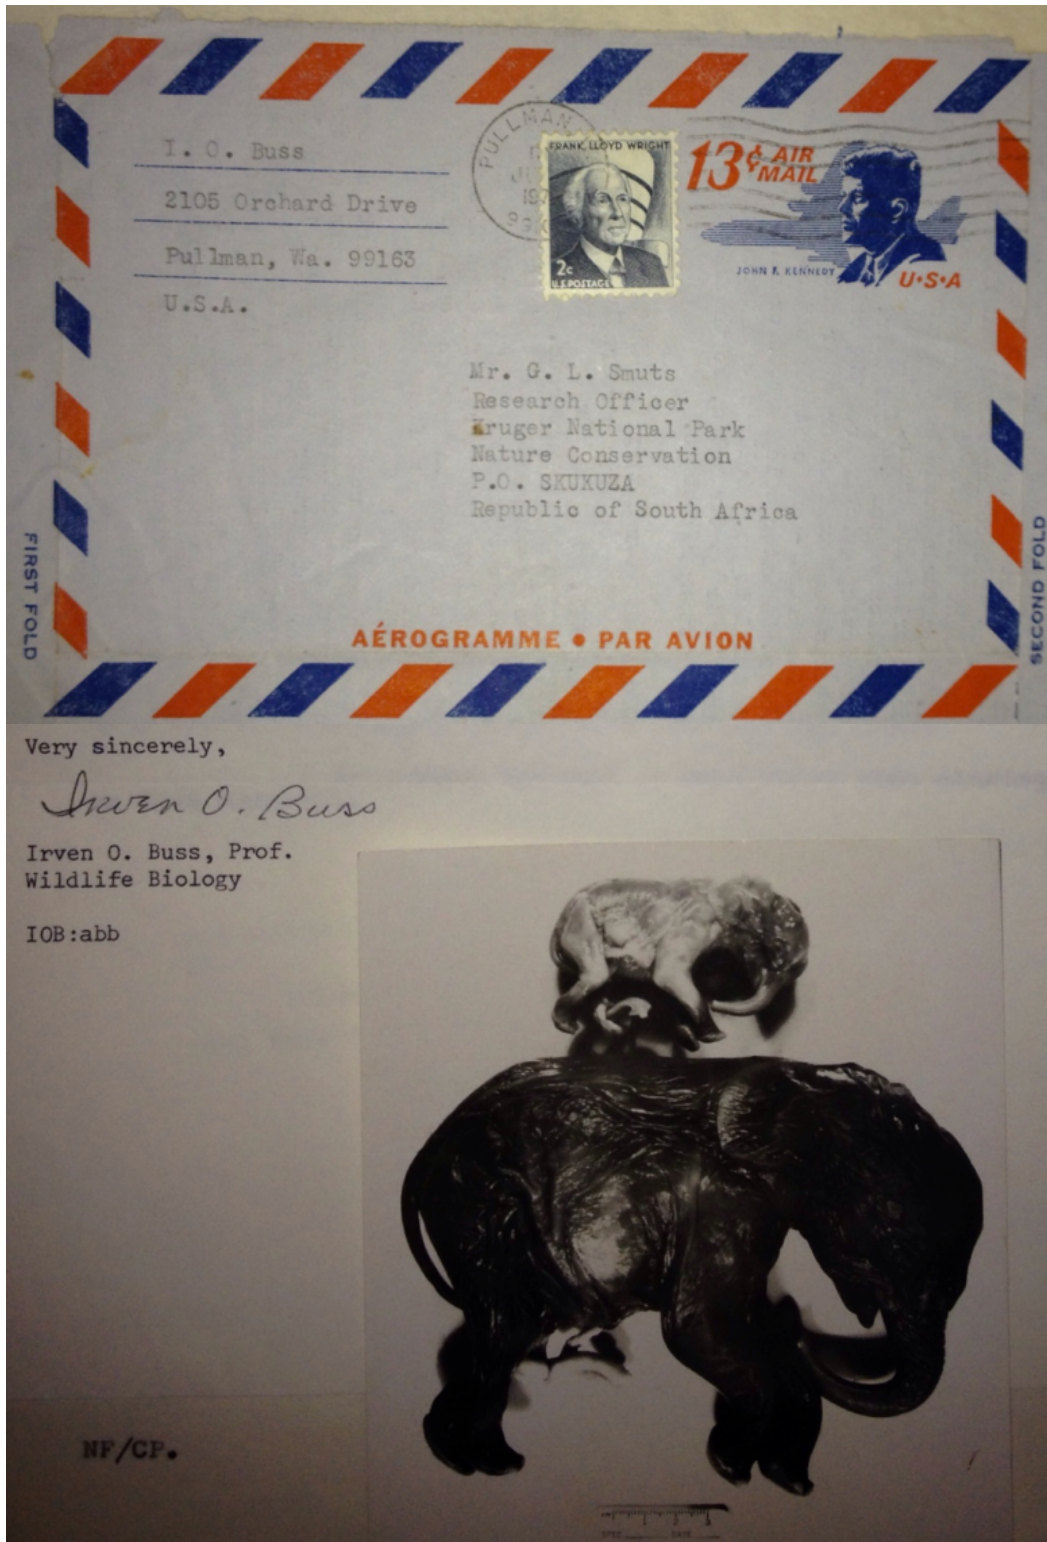 I. O. Buss
2105 Orchard Drive
Pullman, Wa. 99163
U.S.A.
PULLMAN,
FRANK LLOYD WRIGHT
2c
U.S. POSTAGE
13¢ AIR
MAIL
JOHN F. KENNEDY
U·S·A
Mr. G. L. Smuts
Research Officer
Kruger National Park
Nature Conservation
P.O. SKUKUZA
Republic of South Africa
FIRST FOLD
SECOND FOLD
AÉROGRAMME • PAR AVION
Very sincerely,
Irven O. Buss
Irven O. Buss, Prof.
Wildlife Biology
IOB:abb
NF/CP.
SPEC. DATE